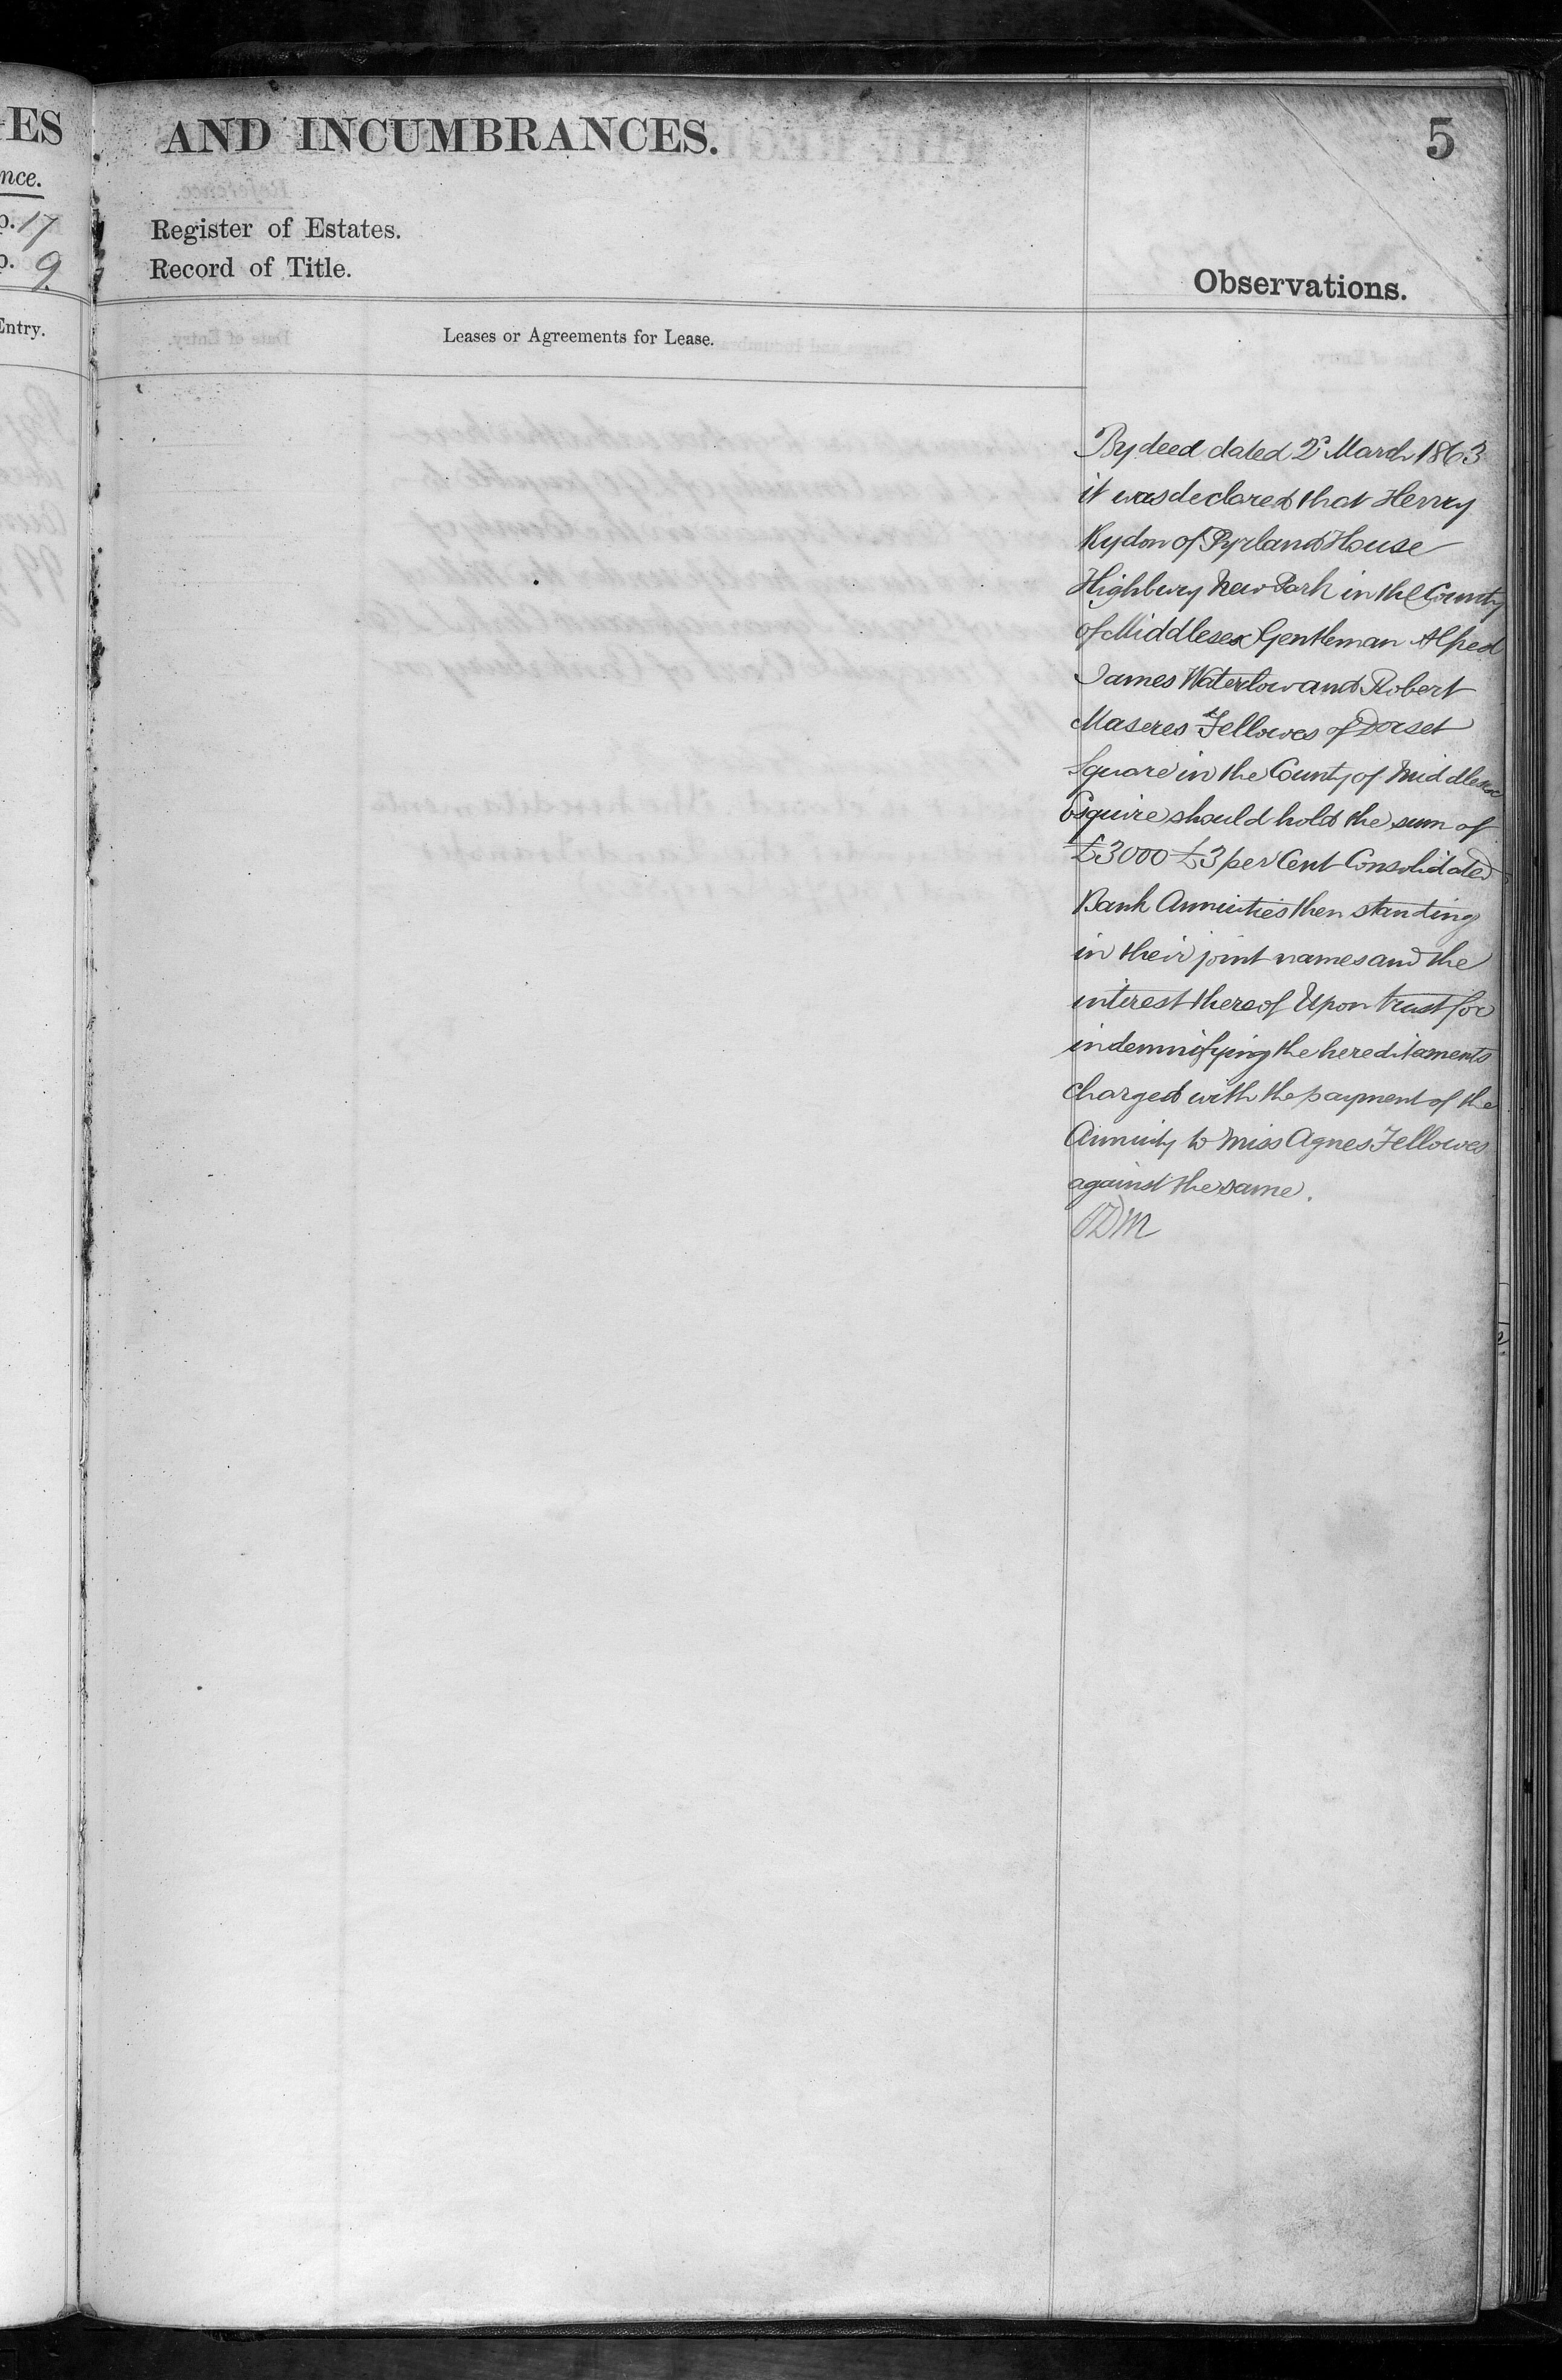 ES
nce.
p. 17
p. 9
Entry.
AND INCUMBRANCES.
5
Register of Estates.
Record of Title.
Observations.
Leases or Agreements for Lease.
By deed dated 2d March 1863
it was declared that Henry
Rydon of Pyrland House
Highbury New Park in the County
of Middlesex Gentleman Alfred
James Waterlow and Robert
Maseres Fellowes of Dorset
Square in the County of Middlesex
Esquire should hold the sum of
£3000 £3 per Cent Consolidated
Bank Annuities then standing
in their joint names and the
interest thereof Upon trust for
indemnifying the hereditaments
charged with the payment of the
Annuity to Miss Agnes Fellowes
against the same.